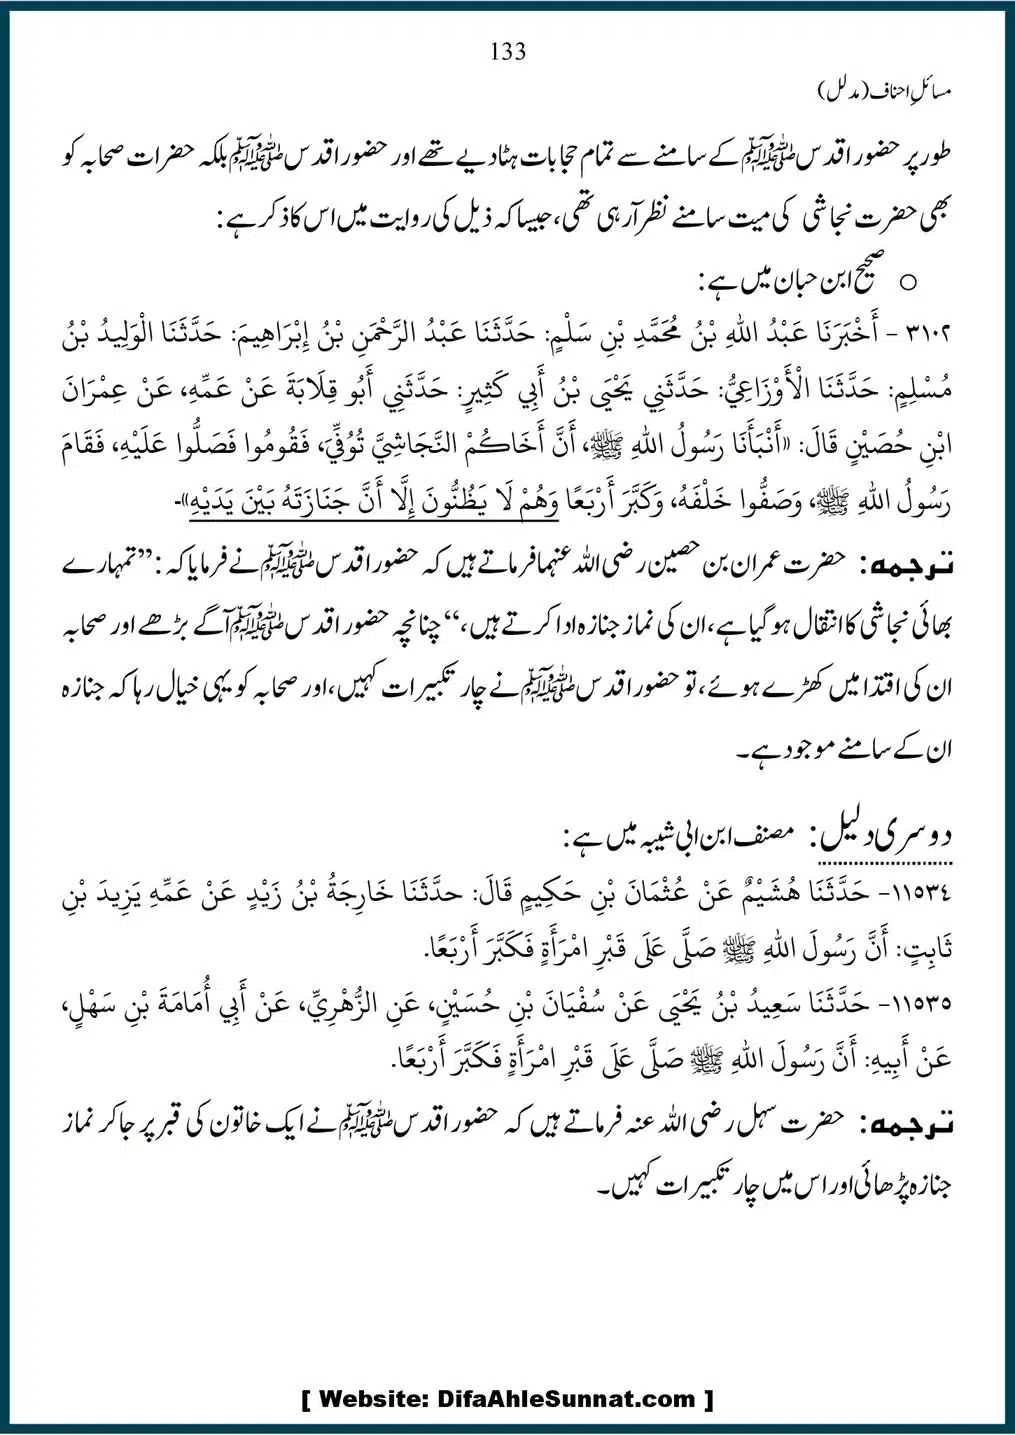 133
مسائلِ احناف (مدلل)
طور پر حضور اقدس ﷺ کے سامنے سے تمام حجابات ہٹا دیے تھے اور حضور اقدس ﷺ بلکہ حضرات صحابہ کو
بھی حضرت نجاشی کی میت سامنے نظر آرہی تھی، جیسا کہ ذیل کی روایت میں اس کا ذکر ہے:
○ صحیح ابن حبان میں ہے:
٣١٠٢ - أَخْبَرَنَا عَبْدُ اللهِ بْنُ مُحَمَّدِ بْنِ سَلْمٍ: حَدَّثَنَا عَبْدُ الرَّحْمَنِ بْنُ إِبْرَاهِيمَ: حَدَّثَنَا الْوَلِيدُ بْنُ
مُسْلِمٍ: حَدَّثَنَا الْأَوْزَاعِيُّ: حَدَّثَنِي يَحْيَى بْنُ أَبِي كَثِيرٍ: حَدَّثَنِي أَبُو قِلَابَةَ عَنْ عَمِّهِ، عَنْ عِمْرَانَ
ابْنِ حُصَيْنٍ قَالَ: «أَنْبَأَنَا رَسُولُ اللهِ ﷺ، أَنَّ أَخَاكُمْ النَّجَاشِيَّ تُوُفِّيَ، فَقُومُوا فَصَلُّوا عَلَيْهِ، فَقَامَ
رَسُولُ اللهِ ﷺ، وَصَفُّوا خَلْفَهُ، وَكَبَّرَ أَرْبَعًا وَهُمْ لَا يَظُنُّونَ إِلَّا أَنَّ جَنَازَتَهُ بَيْنَ يَدَيْهِ»-
ترجمہ: حضرت عمران بن حصین رضی اللہ عنہما فرماتے ہیں کہ حضور اقدس ﷺ نے فرمایا کہ: ”تمہارے
بھائی نجاشی کا انتقال ہو گیا ہے، ان کی نماز جنازہ ادا کرتے ہیں،“ چنانچہ حضور اقدس ﷺ آگے بڑھے اور صحابہ
ان کی اقتدا میں کھڑے ہوئے، تو حضور اقدس ﷺ نے چار تکبیرات کہیں، اور صحابہ کو یہی خیال رہا کہ جنازہ
ان کے سامنے موجود ہے۔
دوسری دلیل: مصنف ابن ابی شیبہ میں ہے:
١١٥٣٤- حَدَّثَنَا هُشَيْمٌ عَنْ عُثْمَانَ بْنِ حَكِيمٍ قَالَ: حدَّثَنَا خَارِجَةُ بْنُ زَيْدٍ عَنْ عَمِّهِ يَزِيدَ بْنِ
ثَابِتٍ: أَنَّ رَسُولَ اللهِ ﷺ صَلَّى عَلَى قَبْرِ امْرَأَةٍ فَكَبَّرَ أَرْبَعًا.
١١٥٣٥- حَدَّثَنَا سَعِيدُ بْنُ يَحْيَى عَنْ سُفْيَانَ بْنِ حُسَيْنٍ، عَنِ الزُّهْرِيِّ، عَنْ أَبِي أُمَامَةَ بْنِ سَهْلٍ،
عَنْ أَبِيهِ: أَنَّ رَسُولَ اللهِ ﷺ صَلَّى عَلَى قَبْرِ امْرَأَةٍ فَكَبَّرَ أَرْبَعًا.
ترجمہ: حضرت سہل رضی اللہ عنہ فرماتے ہیں کہ حضور اقدس ﷺ نے ایک خاتون کی قبر پر جا کر نماز
جنازہ پڑھائی اور اس میں چار تکبیرات کہیں۔
[ Website: DifaAhleSunnat.com ]